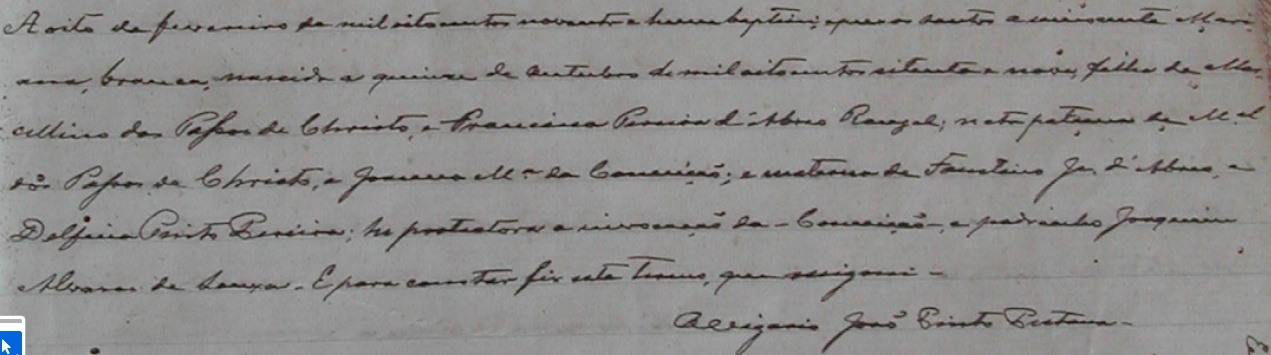 A oito de fevereiro de mil oito centos noventa e hum baptisei, e puz os santos oleos a innocente Mari
anna, branca, nascida a quinze de outubro de mil oito centos setenta e nove, filha de Mar
cellino dos Passos de Christo, e Francisca Pereira d'Abreo Rangel; neta paterna de M.el
dos Passos de Christo, e Joanna M.a da Conceição; e materna de Faustino Je. d'Abreo, e
Delfina Pinto Pereira; he protectora a invocação da - Conceição -, e padrinho Joaquim
Alvares de Souza. E para constar fiz este termo, que assignei -
O Vigario João Pinto Pestana -